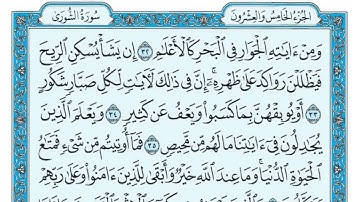 سُورَةُ الشُّورَىٰ الجُزْءُ الخَامِسُ وَالعِشْرُونَ
وَمِنْ ءَايَٰتِهِ ٱلْجَوَارِ فِي ٱلْبَحْرِ كَٱلْأَعْلَٰمِ ٣٢ إِن يَشَأْ يُسْكِنِ ٱلرِّيحَ
فَيَظْلَلْنَ رَوَاكِدَ عَلَىٰ ظَهْرِهِۦٓ إِنَّ فِي ذَٰلِكَ لَءَايَٰتٍ لِّكُلِّ صَبَّارٍ شَكُورٍ
٣٣ أَوْ يُوبِقْهُنَّ بِمَا كَسَبُوا۟ وَيَعْفُ عَن كَثِيرٍ ٣٤ وَيَعْلَمَ ٱلَّذِينَ
يُجَٰدِلُونَ فِيٓ ءَايَٰتِنَا مَا لَهُم مِّن مَّحِيصٍ ٣٥ فَمَآ أُوتِيتُم مِّن شَيْءٍ فَمَتَٰعُ
ٱلْحَيَوٰةِ ٱلدُّنْيَا وَمَا عِندَ ٱللَّهِ خَيْرٌ وَأَبْقَىٰ لِلَّذِينَ ءَامَنُوا۟ وَعَلَىٰ رَبِّهِمْ